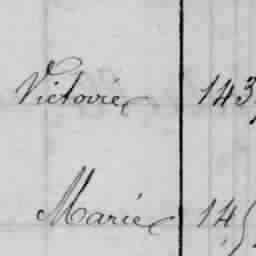 Victorie 143
Marie 145